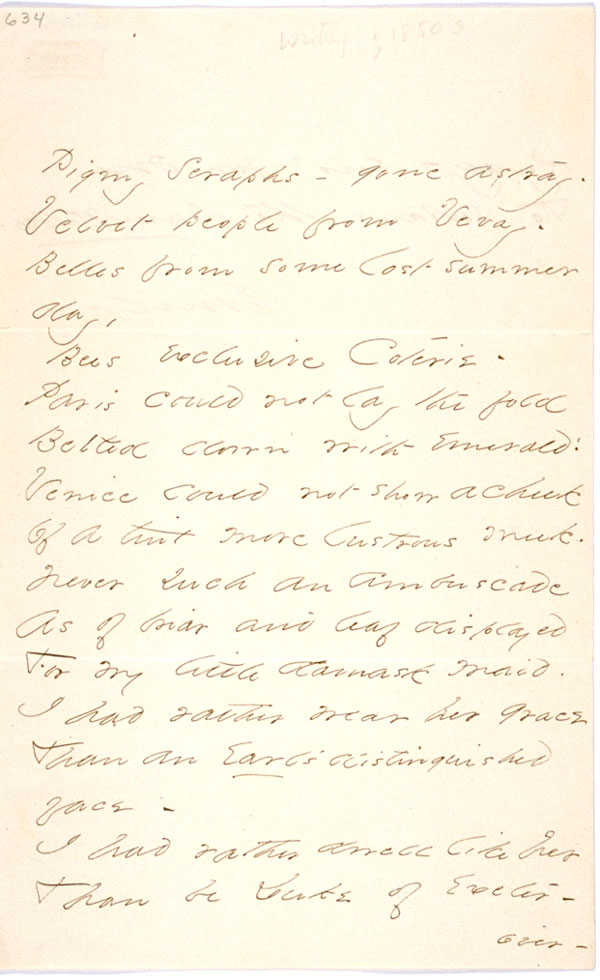 634
Pigmy Seraphs – gone astray.
Velvet people from Vevay.
Belles from some lost summer
day,
Bees exclusive Coterie –
Paris could not lay the fold
Belted down with Emerald:
Venice could not show a cheek
Of a tint more lustrous meek.
Never such an ambuscade
As of briar and leaf displayed
For my little damask maid.
I had rather wear her grace
Than an Earl's distinguished
face –
I had rather dwell like her
Than be Duke of Exeter –
over –